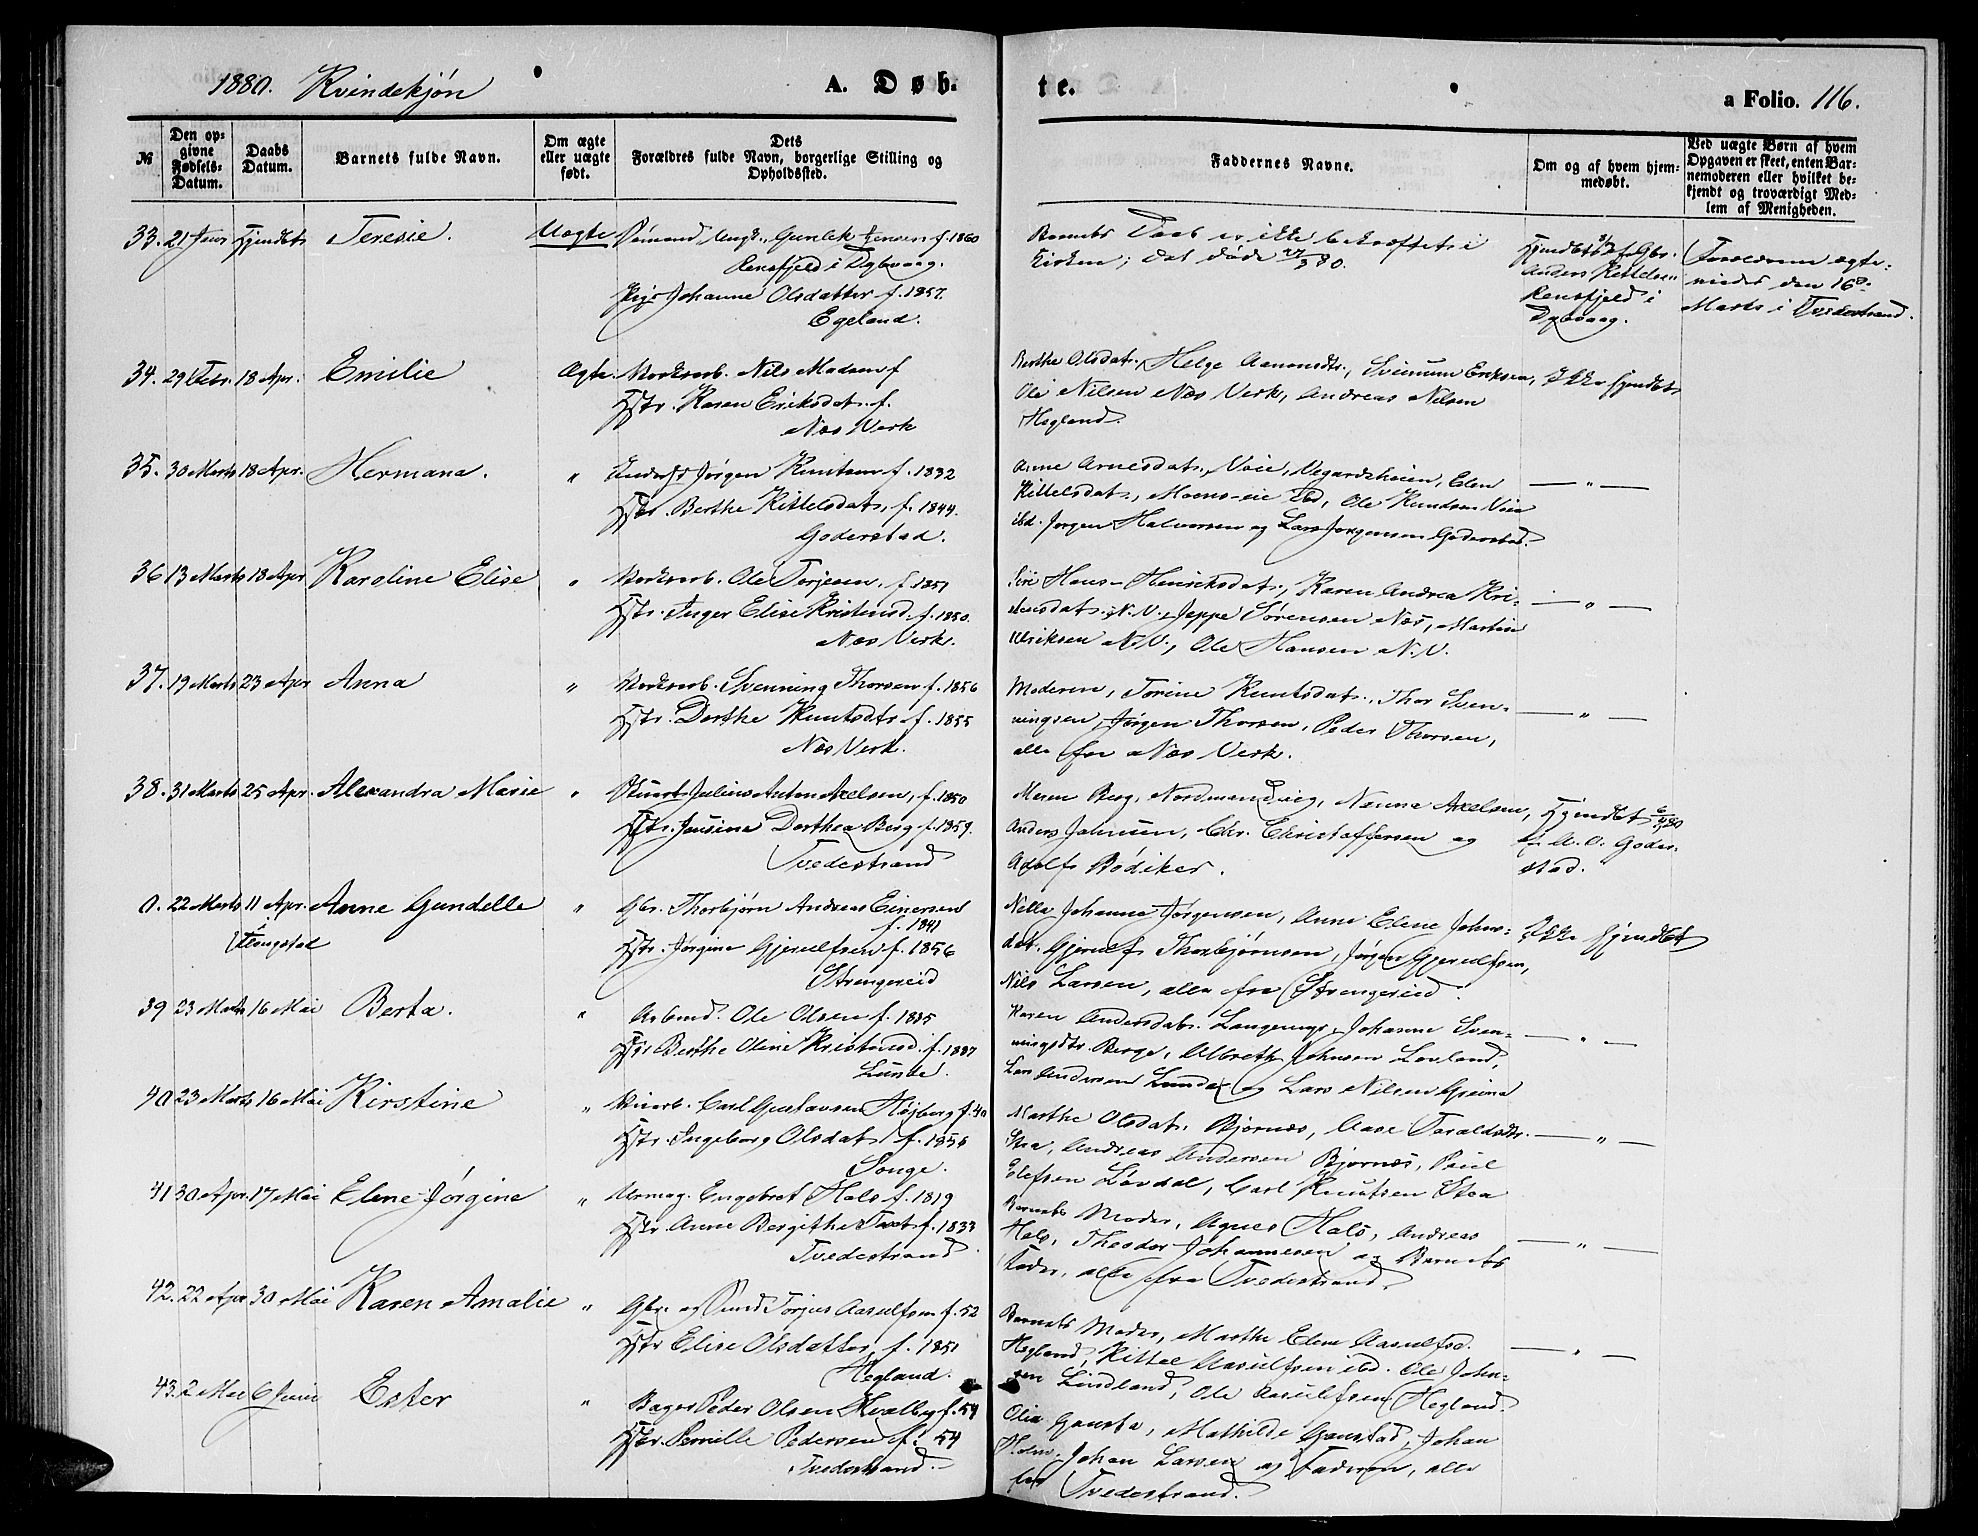 1880. Kvindekjøn
A. Døb-
te.
a Folio. 116.
№
Den op-
givne
Fødsels-
Datum.
Daabs
Datum.
Barnets fulde Navn.
Om ægte
eller uægte
født.
Dets
Forældres fulde Navn, borgerlige Stilling og
Opholdssted.
Faddernes Navne.
Om og af hvem hjem-
medøbt.
Ved uægte Børn af hvem
Opgaven er skeet, enten Bar-
nemoderen eller hvilket be-
kjendt og troværdigt Med-
lem af Menigheden.
33. 21 Janr Hjemdøbt Teresie. Uægte Sømand Ungk. Gunlek Jensen f. 1860
Rensfjeld i Dybvaag.
Pige Johanne Olsdatter f. 1857.
Egeland.
Barnets Daab er ikke bekræftet i
Kirken; det døde 80.
Hjemdøbt af Gbr.
Anders Kittelsen
Rensfjeld i
Dybvaag.
Forældrene ægte-
viedes den 16de
Marts i Tvedestrand.
34. 29 Febr. 18 Apr. Emilie Ægte. Værksarb. Nils Madsen f
Hstr. Karen Eriksdat. f.
Næs Verk
Berthe Olsdat., Helge Aamonsdtr., Svennum Eriksen,
Ole Nilsen Næs Verk, Andreas Nilsen
Hegland.
Ikke hjemdøbt
35. 30 Marts 18 Apr. Hermana. " Jørgen Knutsen f. 1832
Hstr. Berthe Kittelsdat. f. 1844.
Goderstad.
Anne Arnesdat., Voie, Vegardsheien, Elen
Kittelsdat., Moens-eie ibd, Ole Knudsen Voie
ibd. Jørgen Halvorsen og Lars Jørgensen Goderstad.
— " —
36 13 Marts 18 Apr Karoline Elise " Værksarb. Ole Torjesen, f. 1851
Hstr. Inger Elise Kristensd. f. 1850.
Næs Verk.
Siri Hans-Henriksdat., Karen Andrea Kri-
stensdat. N.V., Jeppe Sørensen Næs, Martin
Ulriksen N.V., Ole Hansen N.V.
— " —
37. 19 Marts 23 Apr Anna " Værksarb. Svenning Thorsen f. 1856
Hstr. Dorthe Knutsdtr f. 1855
Næs Verk.
Moderen, Torine Knutsdat., Thor Sven-
ningsen, Jørgen Thorsen, Peder Thorsen,
alle fra Næs Verk.
— " —
38. 31 Marts 25 Apr. Alexandra Marie " Julius Anton Axelsen, f. 1850
Hstr. Jensine Dorthea Berg f. 1859.
Tvedestrand
Maren Berg, Nordmandvig, Nanna Axelsen,
Anders Jensen, Chr. Christoffersen og
Adolf Bødiker.
Hjemdøbt
af A. O. Goder-
stad.
0. 22 Marts 11 Apr. Anne Gundelle " Gbr. Thorbjørn Andreas Einersen
f. 1841
Flangstad
Hstr. Jørgine Gjerulfsen f. 1856
Strengereid
Nella Johanne Jørgensen, Anne Elene Johns-
dat. Gjerulf Thorbjørnsen, Jørgen Gjerulfsen,
Nils Larsen, alle fra Strengereid.
Ikke hjemdøbt
39 23 Marts 16 Mai Berta. " Arbmd. Ole Olsen f. 1835
Hstr Berthe Oline Kristensd. f. 1837
Lunde.
Karen Andersdat. Langeng, Johanne Sven-
ningsdtr. Berge, Albreth Johnsen Lovland,
Lars Andersen Lunde og Lars Nilsen Greina
— " —
40 23 Marts 16 Mai Kirstine " Carl Gustavsen Højberg f. 40
Hstr. Ingeborg Olsdat f. 1856
Songe.
Marthe Olsdat. Bjørnæs, Aase Taraldsdtr.
Stea, Andreas Andersen Bjørnæs, Poul
Elefsen Løvdal, Carl Knutsen Stea
— " —
41 30 Apr. 17 Mai Elene Jørgine " Urmag. Engebret Hals f. 1819
Hstr. Anne Bergithe f. 1833
Tvedestrand
Barnets Moder, Agnes Hals, Andreas
Hals, Theodor Johannesen og Barnets
Fader, alle fra Tvedestrand.
— " —
42. 22 Apr 30 Mai Karen Amalie " Gbr. og Sømd Torjus Aasulfsen f. 52
Hstr Elise Olsdatter f. 1851
Hegland.
Barnets Moder, Marthe Elene Aasulfsd.
Hegland, Kittel Aasulfsen ibd. Ole John-
sen Lindland, Ole Aasulfsen Hegland.
— " —
43. 2 Mai 6 Juni Ester " Bager Peder Olsen Hvalby f. 54
Hstr. Pernille Pedersen f. 54
Tvedestrand.
Olia Gansta, Mathilde Ganstad, Johan
Holm, Johan Larsen og Faderen, alle
fra Tvedestrand.